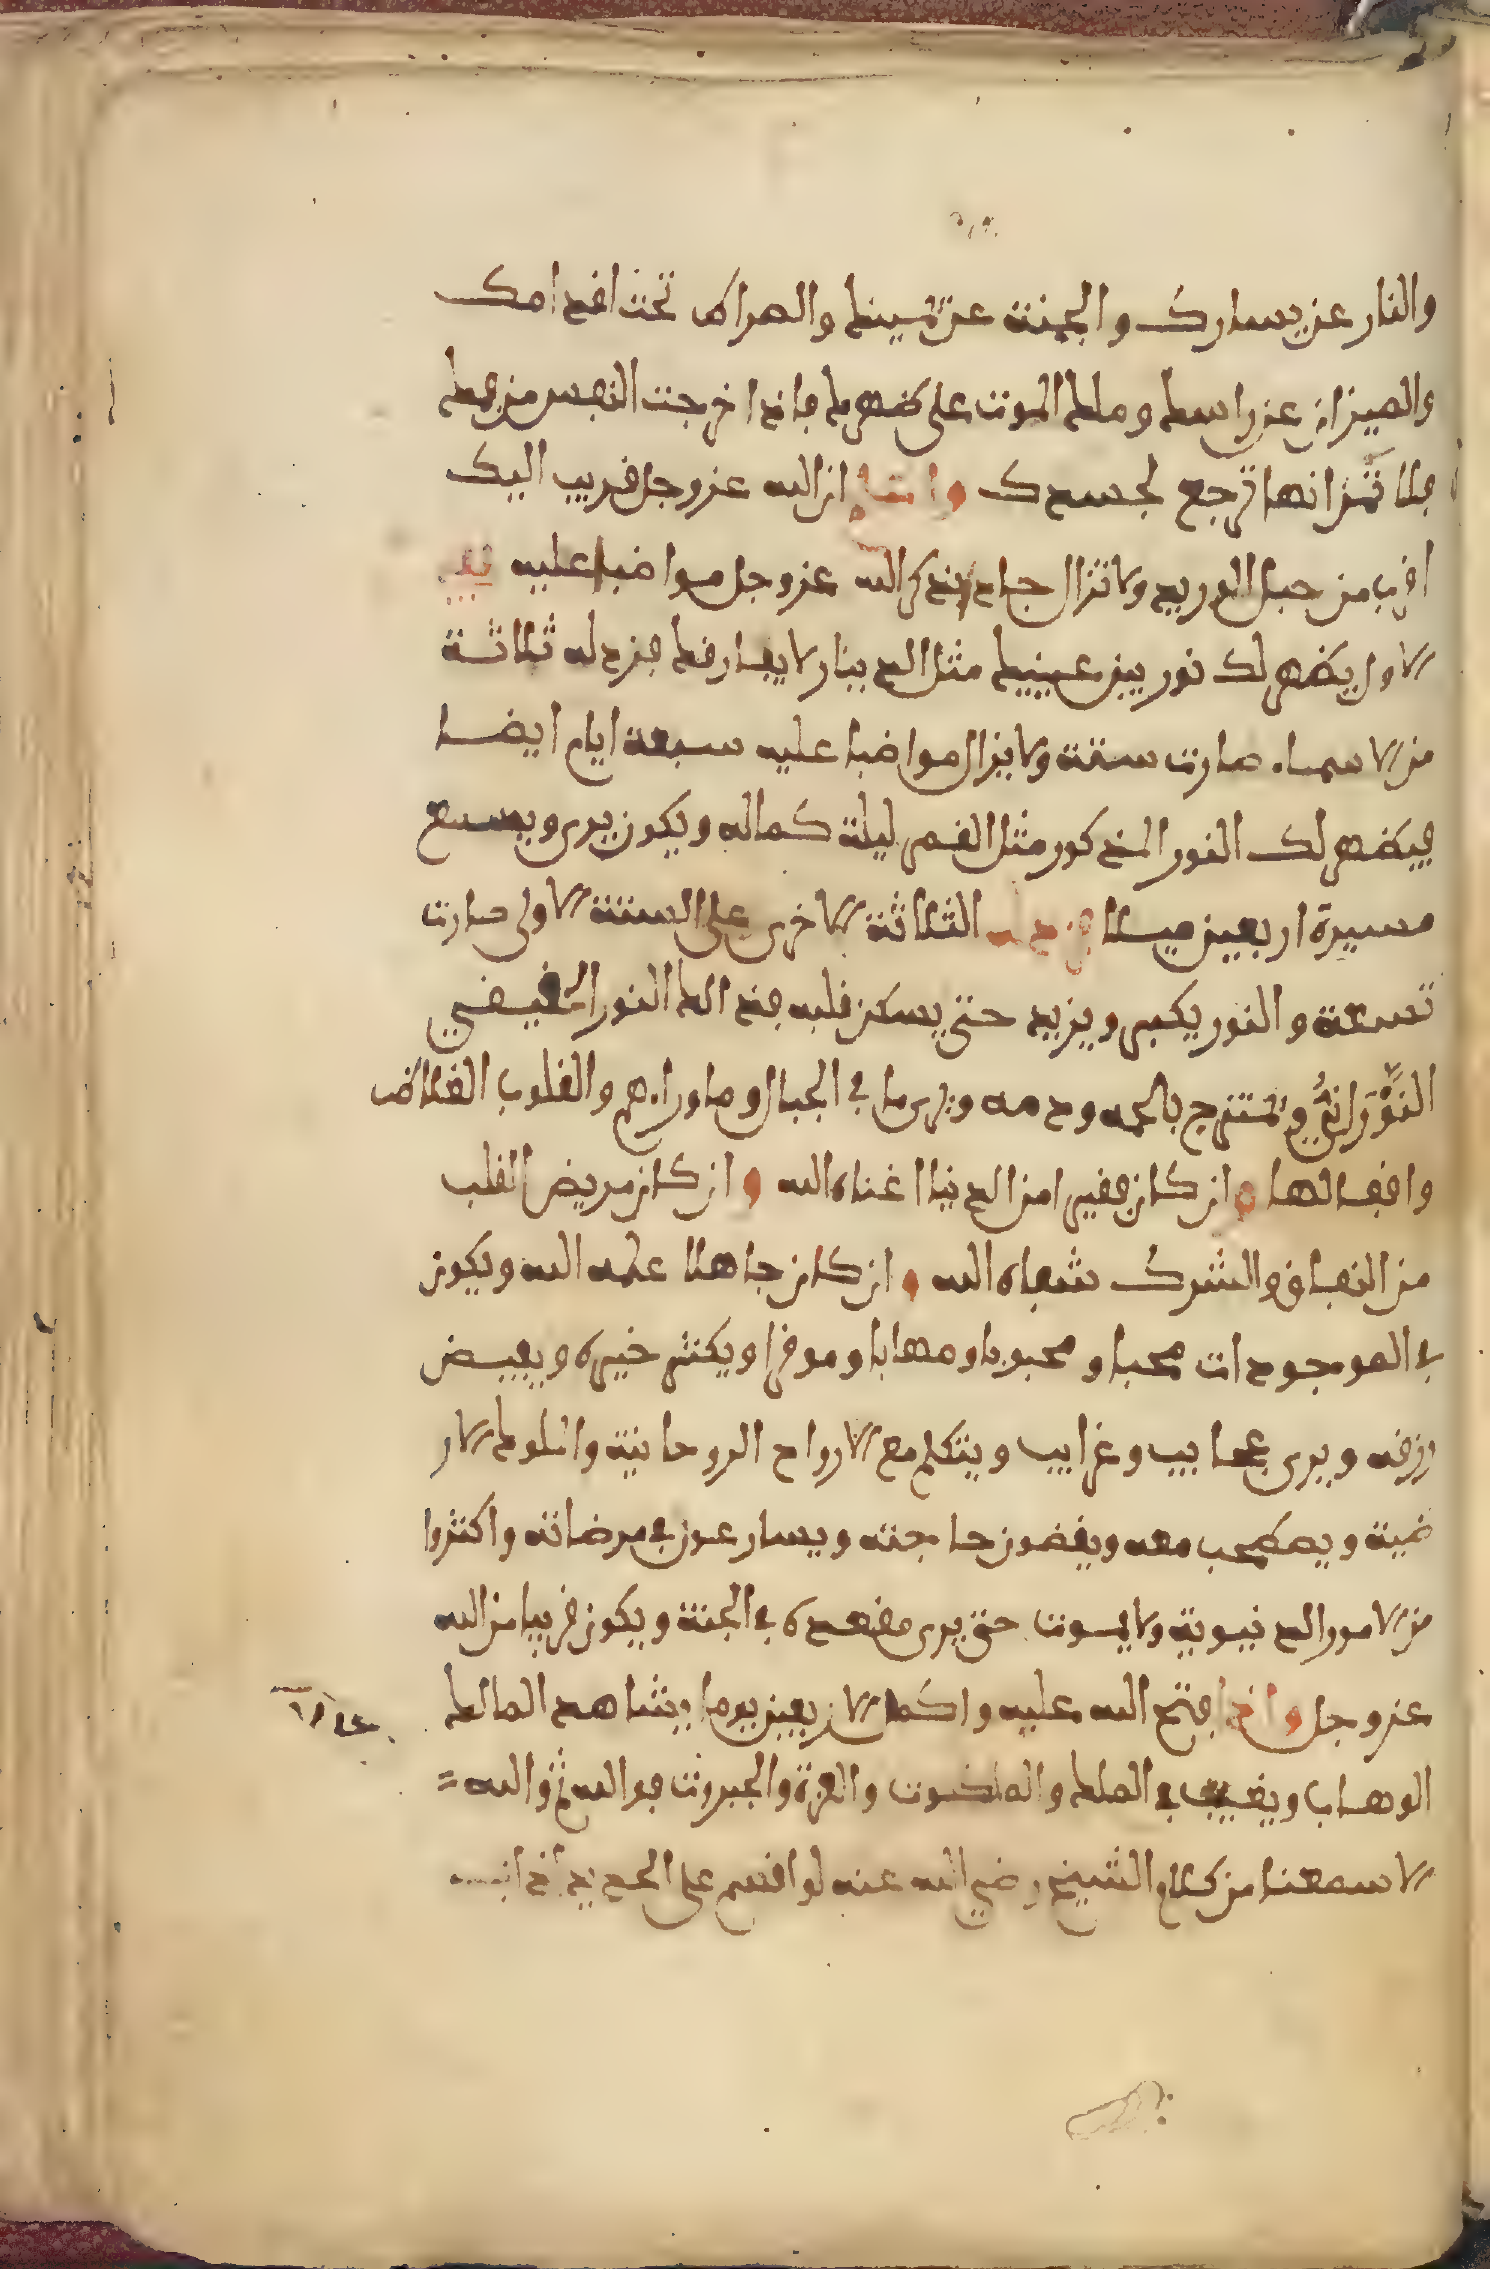 والنار عن يسارك والجنة عن يمينك والصراط تحت اقدامك
والميزان عن راسك وملك الموت على ظهرك فاذا خرجت النفس من فمك
فلا تظن انها ترجع لجسدك وان الله عز وجل قريب اليك
اقرب من حبل الوريد ولا تزال جاد بذكر الله عز وجل مواضبا عليه
الاول يظهر لك نور بين عينيك مثل الدينار لا يفارقك فزد له ثلاثة
من الاسماء صارت ستة ولا يزال مواضبا عليه سبعة ايام ايضا
فيظهر لك النور المذكور مثل القمر ليلة كماله ويكون يرى ويسمع
مسيرة اربعين ميلا فزد له الثلاثة الاخرى على الستة الاولى صارت
تسعة والنور يكبر ويزيد حتى يسكن قلبه فذالك النور الحقيقي
النوراني ويمتزج بالحمه ودمه ويرى ما في الجبال وما وراءهم والقلوب الغلاظ
واقفالها وان كان فقيرا من الدنيا اغناه الله وان كان مريض القلب
من النفاق والشرك شفاه الله وان كان جاهلا علمه الله ويكون
في الموجودات محبا ومحبوبا ومهابا وموقرا ويكثر خيره ويفيض
رزقه ويرى عجايب وغرايب ويتكلم مع الارواح الروحانية والملوك الار
ضية ويصطحب معه ويقضون حاجته ويسارعون في مرضاته واكثروا
من الامور الدنيوية ولا يموت حتى يرى مقعده في الجنة ويكون قريبا من الله
عز وجل واذا فتح الله عليه واكمل الاربعين يوما يشاهد المالك
الوهاب ويغيب في الملك والملكوت والعزة والجبروت فوالله ثم والله =
لا سمعنا من كلام الشيخ رضي الله عنه لو اقسم على الحديد